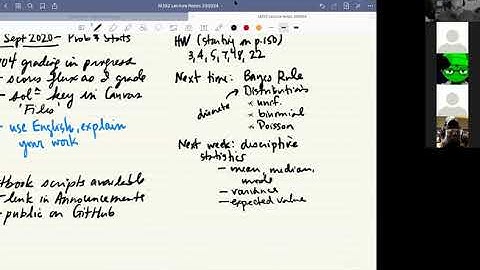 Sept 2020 - Prob & Stats
04 grading in progress
- score flux as I grade
- sol= key in Canvas
'Files'
- use English, explain
your work
tbook scripts available
- link in Announcements
- public on GitHub
HW (starting on p.150)
3, 4, 5, 7, 48, 22
Next time: Bayes Rule
Distributions
discrete
unif.
binomial
Poisson
Next week: descriptive
statistics
- mean, median,
mode
- variance
- expected value